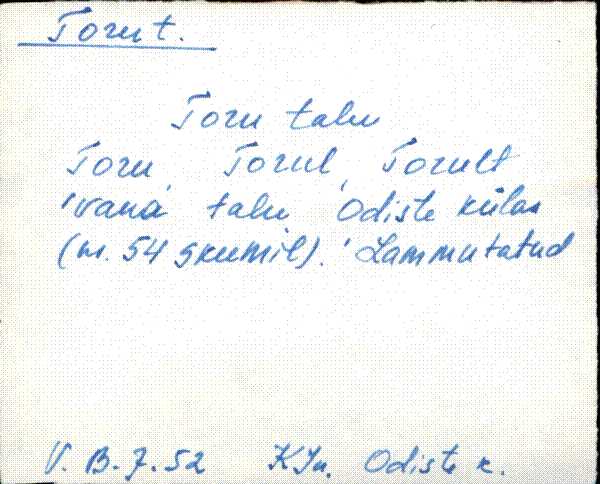 Toru t.
Toru talu
Toru, Torul, Torult
vana talu Odiste külas
(nr. 54 skeemil). Lammutatud
V. B. 7. 52 KJn. Odiste k.